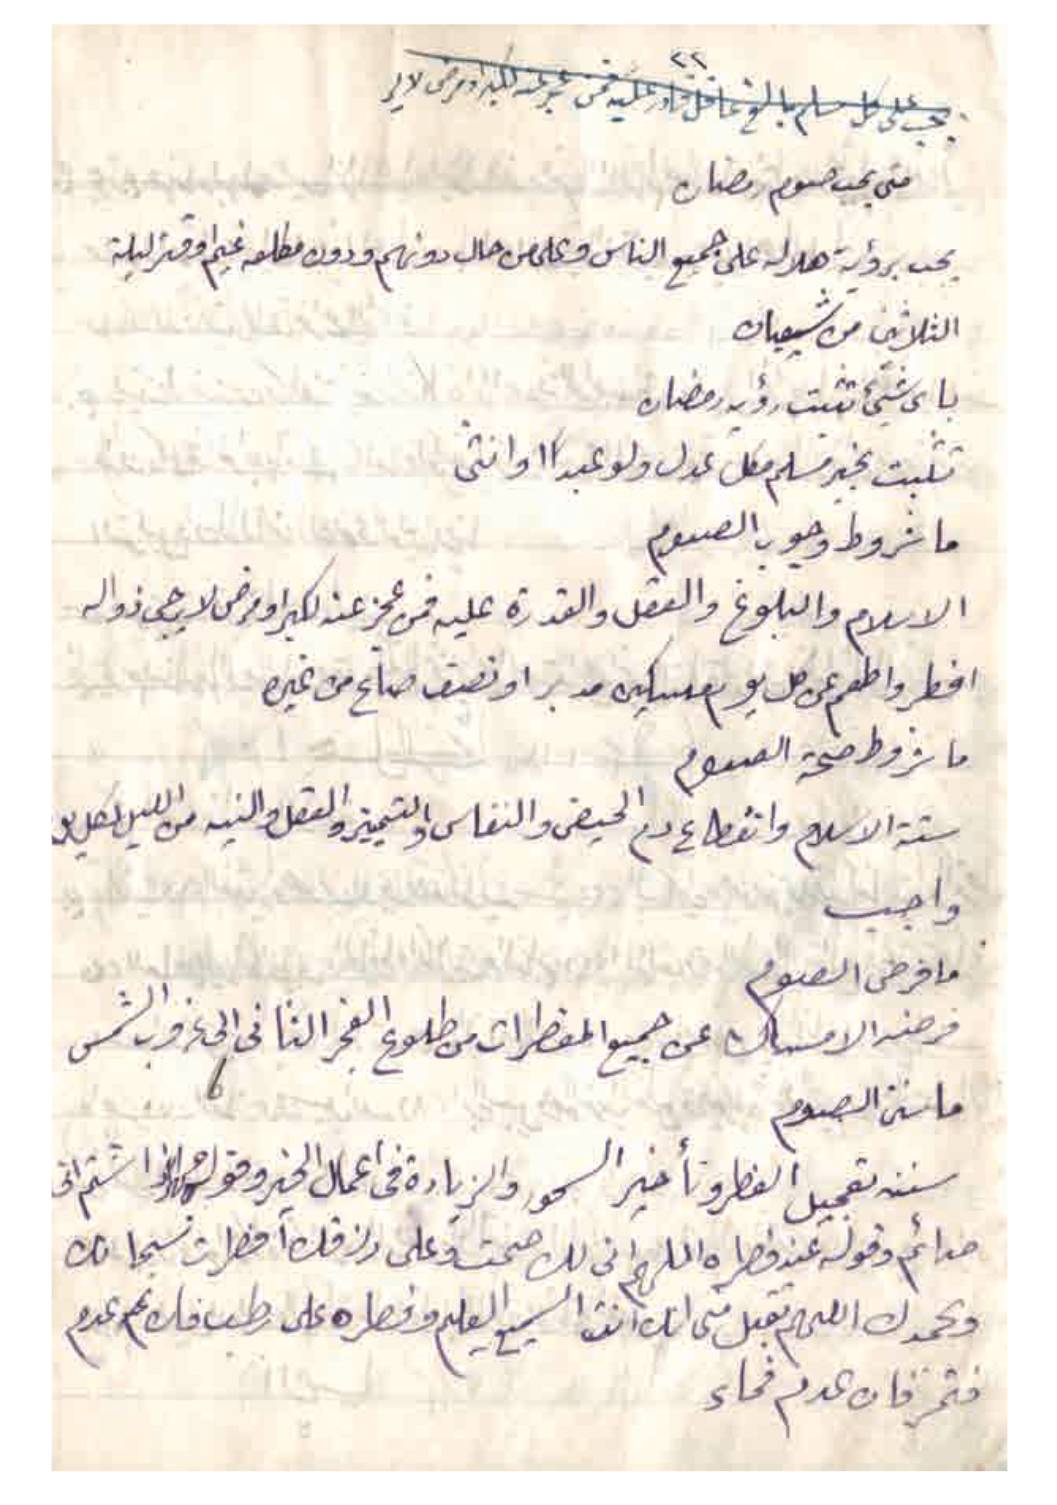 ٢٢
يجب على كل مسلم بالغ عاقل قادر عليه فمن عجز عنه لكبر او مرض لا ير
متى يجب صوم رمضان
يجب برؤية هلاله على جميع الناس وعلى من حال دونهم ودون مطلعه غيم او قتر ليلة
الثلاثين من شعبان
باى شيئ تثبت رؤية رمضان
تثبت بخبر مسلم مكلف عدل ولو عبدا او انثى
ما شروط وجوب الصوم
الاسلام والبلوغ والعقل والقدرة عليه فمن عجز عنه لكبر او مرض لا يرجى زواله
افطر واطعم عن كل يوم مسكين مد بر او نصف صاع من غيره
ما شروط صحة الصوم
ستة الاسلام وانقطاع دم الحيض والنفاس والتمييز والعقل والنيه من الليل لكل يو
واجب
ما فرض الصوم
فرضه الامساك عن جميع المفطرات من طلوع الفجر الثانى الى غروب الشمس
ما سنن الصوم
سننه تعجيل الفطر وتأخير السحور والزيادة فى اعمال الخير وقوله اذا شتم انى
صائم وقوله عند فطره اللهم انى لك صمت وعلى رزقك أفطرت سبحانك
وبحمدك اللهم تقبل منى انك انت السميع العليم وفطره على رطب فان عدم
فتمر فان عدم فماء